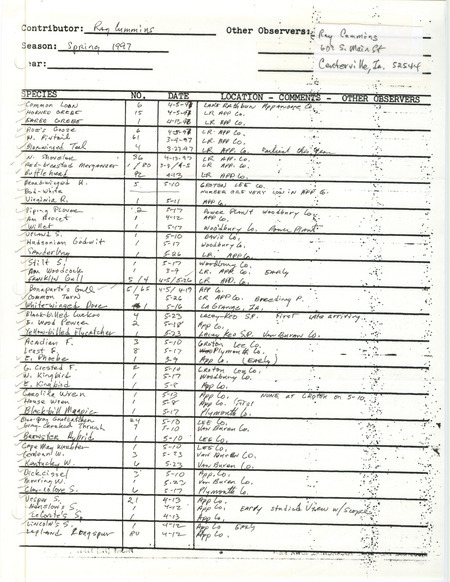 Contributor: Ray Cummins Other Observers: Ray Cummins
Season: Spring 1997 607 S. Main St
Year: Centerville, Ia. 52544
SPECIES NO. DATE LOCATION - COMMENTS - OTHER OBSERVERS
Common Loon 6 4-5-97 Lake Rathbun Appanoose Co.
Horned Grebe 15 4-5-98 LR App Co.
Eared Grebe 4-13-98 LR App Co.
Ross's Goose LR App Co.
N. Pintail 61 3-9-97 LR App Co.
4 3-23-97 LR App. Co. Earliest this year
N. Shoveler 96 4-13-97 LR App Co.
Red-breasted Merganser LR App. Co.
Bufflehead 92 4-13 LR App Co.
Broad-winged H. 5 5-10 Croton Lee Co.
Bob-White Number are very low in App Co.
Virginia R. 1 5-11 App Co
Piping Plover 2 5-17 Power Plant Woodbury Co.
Am Avocet 4-12 App Co.
Willet 1 5-17 Woodbury Co. Power Plant
5-10 Davis Co.
Hudsonian Godwit 1 5-17 Woodbury Co.
Sanderling 5-26 LR. App Co.
Stilt S. 1 5-17 Woodbury Co.
Am Woodcock 3-9 LR. App Co. Early
Franklin Gull 5/4 4-5/5/26 LR App. Co.
Bonaparte's Gull 5/65 4-5/4-19 App Co.
Common Tern 7 5-26 LR App Co. Breeding P.
White-winged Dove 1 5-16 La Grange, Ia.
Black-billed Cuckoo 4 5-23 Lacey-Keo S.P. First late arriving
E. Wood Pewee 2 5-18 App Co.
Yellow-billed Flycatcher 1 5-23 Lacey Keo S.P. Van Buren Co.
Acadian F. 3 5-10 Croton Lee Co.
Least F. 8 5-17 Plymouth Co.
E. Phoebe 1 3-9 App Co. (Early)
G. Crested F. 2 5-10 Croton Lee Co.
W. Kingbird 1 5-17 Woodbury Co.
E. Kingbird 1 5-8 App Co.
Carolina Wren 1 5-13 App Co. None at Croton on 5-10,
House Wren 5-8 App Co. First
Black-bill Magpie 1 5-17 Plymouth Co.
Blue-gray Gnatcatcher 5-10 Lee Co.
Gray-cheeked Thrush 5-10 Van Buren Co.
Brewster Hybrid 1 5-10 Lee Co.
Cape May Warbler 1 5-10 Lee Co.
Cerulean W. 3 5-23 Van Buren Co.
Kentucky W. 6 5-23 Van Buren Co.
Dickcissel 5-10 App Co.
5-23 Van Buren Co.
Clay-colore S. 6 5-17 Plymouth Co.
Vesper S. 21 4-13 App Co.
4-12 App Co. Early studied view w/ scope
LeConte's S. 1 4-13 App Co.
Lincoln's S. 1 4-12 App Co Early
Lapland Longspur 80 4-12 App Co.